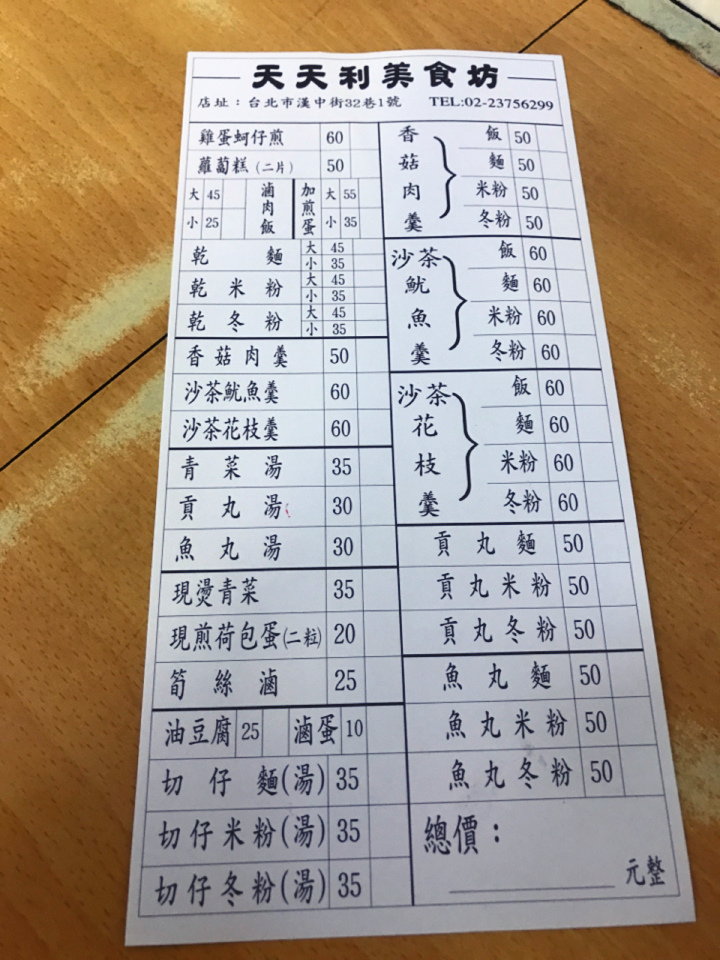 天天利美食坊
店址：台北市漢中街32巷1號 TEL:02-23756299
雞蛋蚵仔煎 60
蘿蔔糕(二片) 50
大 45 滷肉飯 加煎蛋 大 55
小 25 小 35
乾麵 大 45
小 35
乾米粉 大 45
小 35
乾冬粉 大 45
小 35
香菇肉羹 50
沙茶魷魚羹 60
沙茶花枝羹 60
青菜湯 35
貢丸湯 30
魚丸湯 30
現燙青菜 35
現煎荷包蛋(二粒) 20
筍絲滷 25
油豆腐 25 滷蛋 10
切仔麵(湯) 35
切仔米粉(湯) 35
切仔冬粉(湯) 35
香菇肉羹
飯 50
麵 50
米粉 50
冬粉 50
沙茶魷魚羹
飯 60
麵 60
米粉 60
冬粉 60
沙茶花枝羹
飯 60
麵 60
米粉 60
冬粉 60
貢丸麵 50
貢丸米粉 50
貢丸冬粉 50
魚丸麵 50
魚丸米粉 50
魚丸冬粉 50
總價：
元整